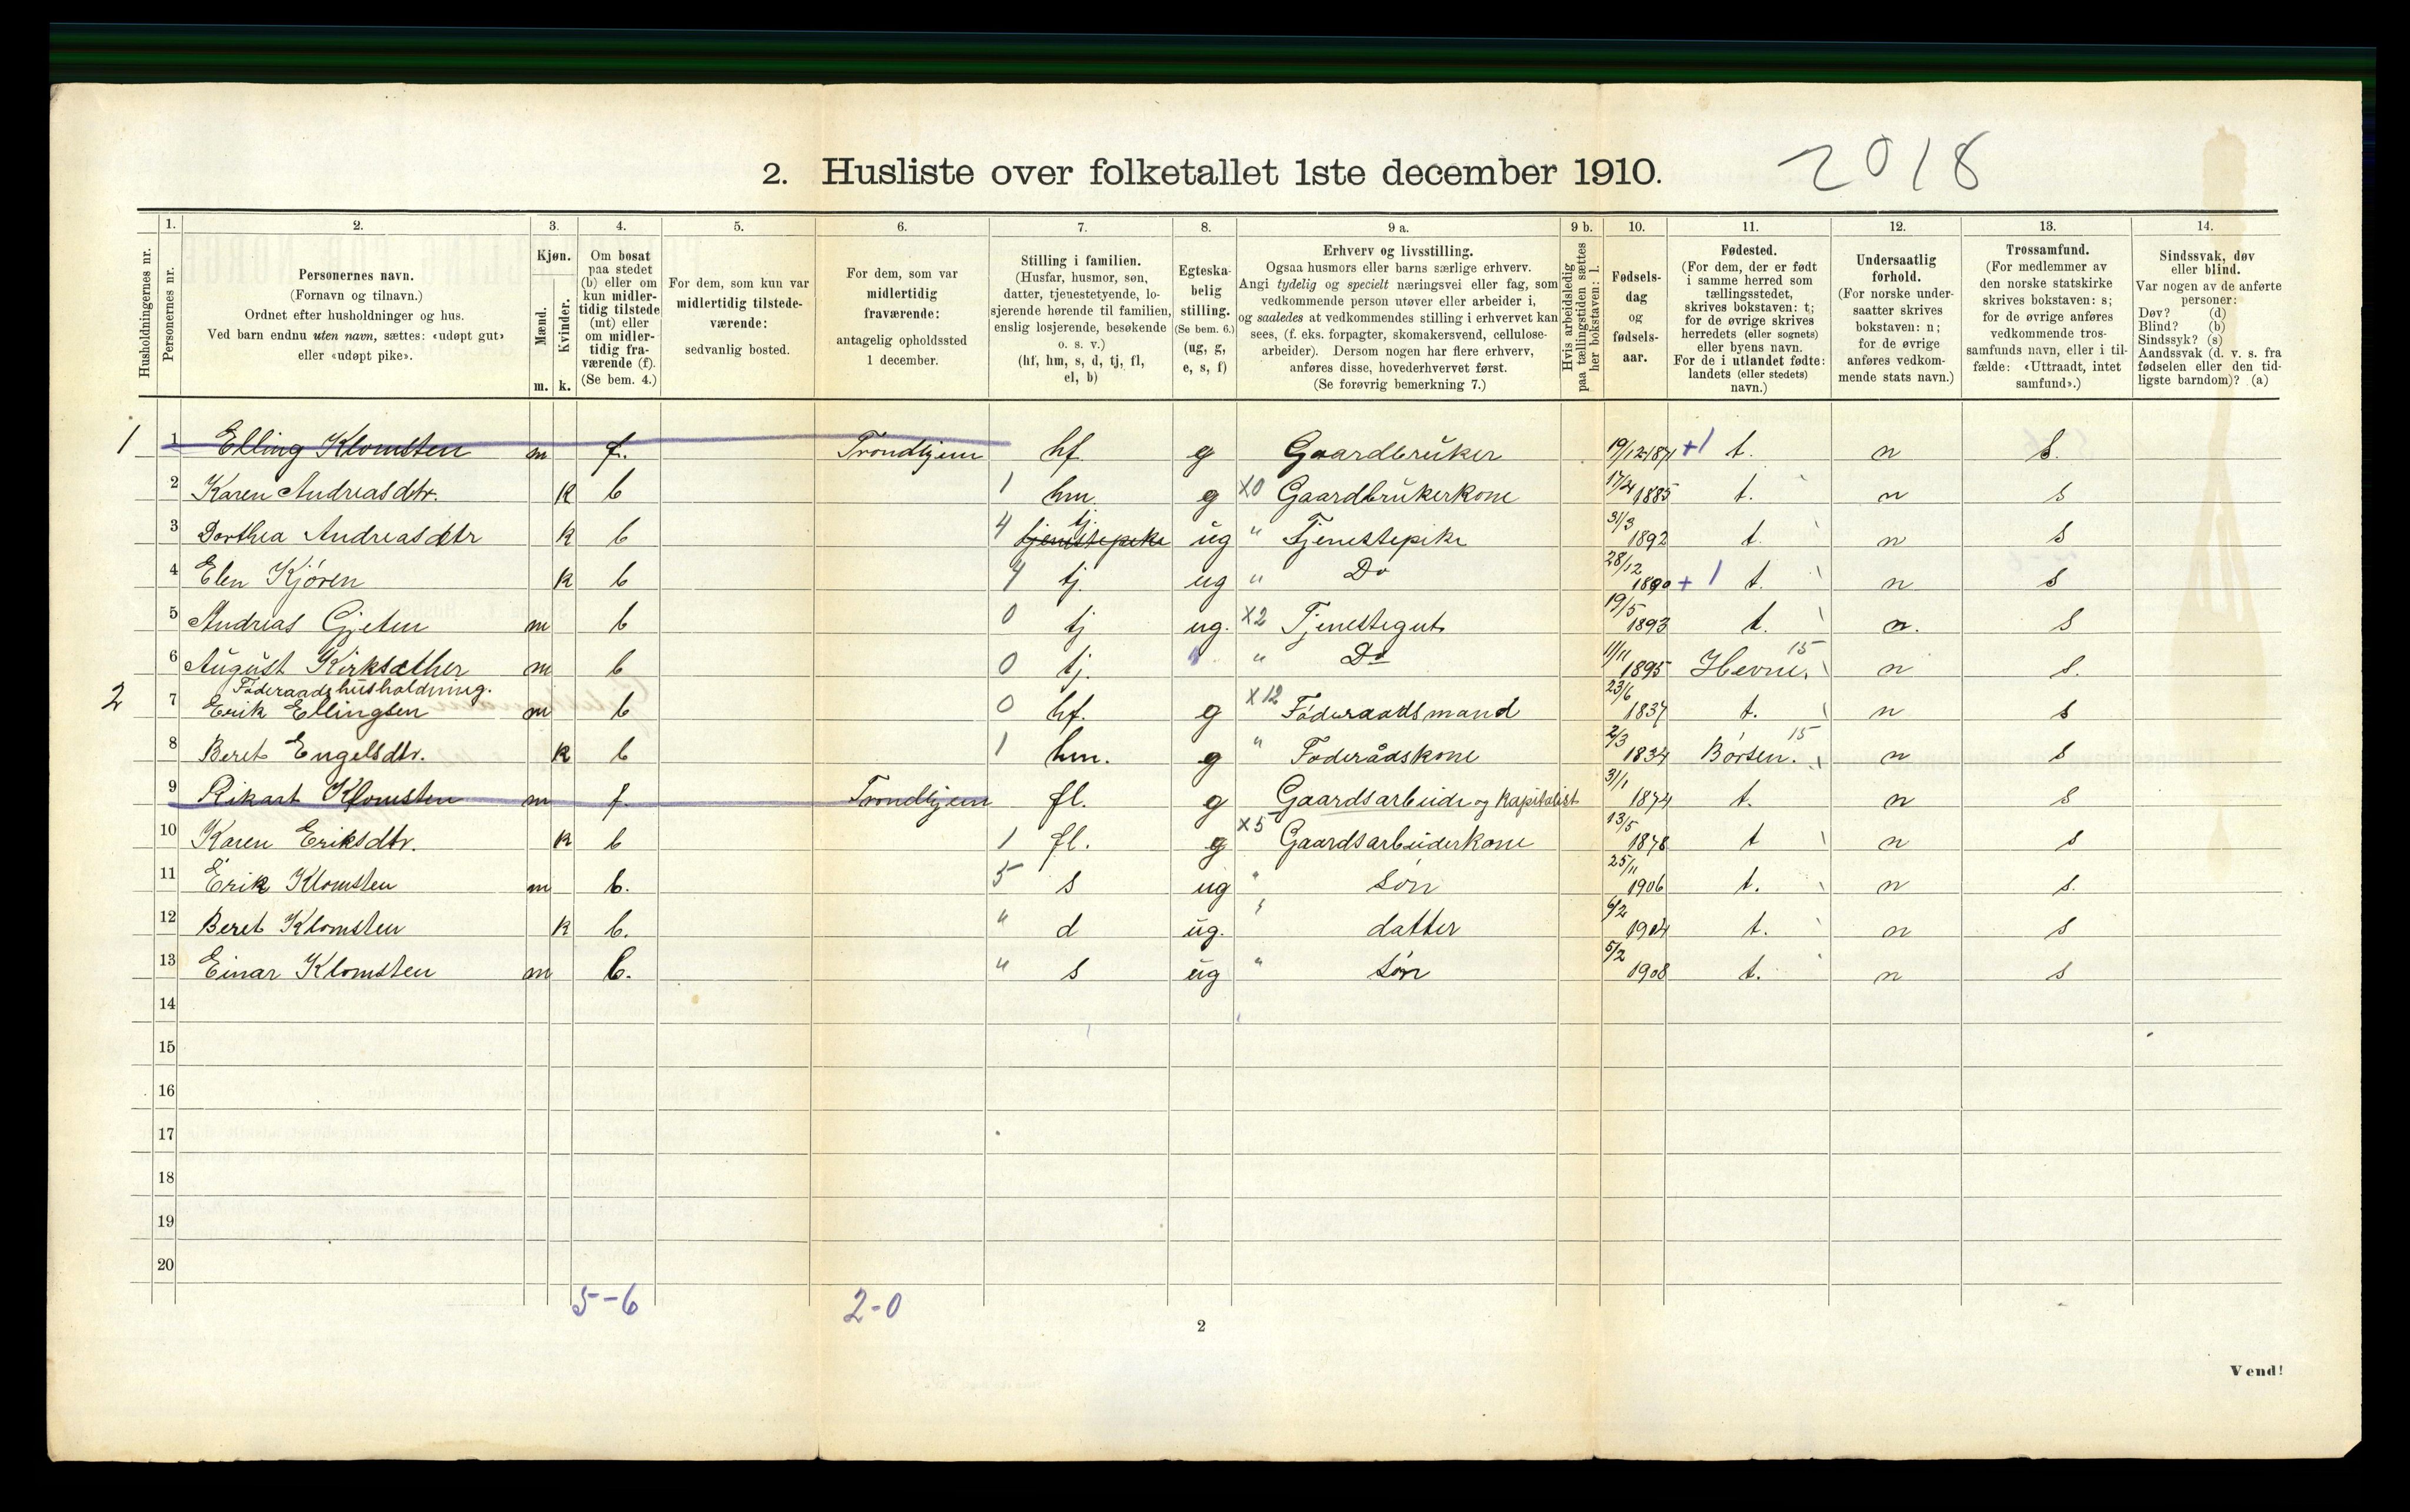 2018
2. Husliste over folketallet 1ste december 1910.
Husholdningernes nr.
1. Personernes nr.
2. Personernes navn. (Fornavn og tilnavn.) Ordnet efter husholdninger og hus. Ved barn endnu uten navn, sættes: «udøpt gut» eller «udøpt pike».
3. Kjøn. Mænd. m. Kvinder. k.
4. Om bosat paa stedet (b) eller om kun midlertidig tilstede (mt) eller om midlertidig fraværende (f). (Se bem. 4.)
5. For dem, som kun var midlertidig tilstedeværende: sedvanlig bosted.
6. For dem, som var midlertidig fraværende: antagelig opholdssted 1 december.
7. Stilling i familien. (Husfar, husmor, søn, datter, tjenestetyende, losjerende hørende til familien, enslig losjerende, besøkende o. s. v.) (hf, hm, s, d, tj, fl, el, b)
8. Egteskabelig stilling. (Se bem. 6.) (ug, g, e, s, f)
9 a. Erhverv og livsstilling. Ogsaa husmors eller barns særlige erhverv. Angi tydelig og specielt næringsvei eller fag, som vedkommende person utøver eller arbeider i, og saaledes at vedkommendes stilling i erhvervet kan sees, (f. eks. forpagter, skomakersvend, cellulosearbeider). Dersom nogen har flere erhverv, anføres disse, hovederhvervet først. (Se forøvrig bemerkning 7.)
9 b. Hvis arbeidsledig paa tællingstiden sættes her bokstaven: l.
10. Fødselsdag og fødselsaar.
11. Fødested. (For dem, der er født i samme herred som tællingsstedet, skrives bokstaven: t; for de øvrige skrives herredets (eller sognets) eller byens navn. For de i utlandet fødte: landets (eller stedets) navn.)
12. Undersaatlig forhold. (For norske undersaatter skrives bokstaven: n; for de øvrige anføres vedkommende stats navn.)
13. Trossamfund. (For medlemmer av den norske statskirke skrives bokstaven: s; for de øvrige anføres vedkommende trossamfunds navn, eller i tilfælde: «Uttraadt, intet samfund».)
14. Sindssvak, døv eller blind. Var nogen av de anførte personer: Døv? (d) Blind? (b) Sindssyk? (s) Aandssvak (d. v. s. fra fødselen eller den tidligste barndom)? (a)
1 1 Elling Klomsten m f. Trondhjem hf g Gaardbruker 19/12 1871 +1 t. n s.
2 Karen Andreasdtr. k b 1 hm g x0 Gaardbrukerkone 17/4 1885 t. n s
3 Dorthea Andreasdtr k b 4 tjenestepike tj. ug " Tjenestepike 31/3 1892 t. n s
4 Elen Kjøren k b 4 tj. ug " Do 28/12 1890 +1 t. n s
5 Andreas Gjeten m b 0 tj ug. x2 Tjenestegut 19/5 1893 t. n. s
6 August Kirksæther m b 0 tj. " Do 11/11 1895 Hevne. 15 n s.
Føderaadshusholdning.
2 7 Erik Ellingsen m b 0 hf. g x12 Føderaadsmand 23/6 1837 t. n s
8 Beret Engelsdtr. k b 1 hm. g " Føderådskone 2/3 1834 Børsen. 15 n s
9 Rikart Klomsten m f. Trondhjem fl. g Gaardsarbeide og kapitalist 31/1 1874 t. n s
10 Karen Eriksdtr. k b 1 fl. g x5 Gaardsarbeiderkone 13/5 1878 t n s
11 Erik Klomsten m b. 5 s ug " søn 25/11 1906 t. n s.
12 Beret Klomsten k b. " d ug. " datter 6/2 1904 t. n s
13 Einar Klomsten m b. " s ug " søn 5/2 1908 t. n s
14
15
16
17
18
19
20
5-6 2-0
2
Vend!